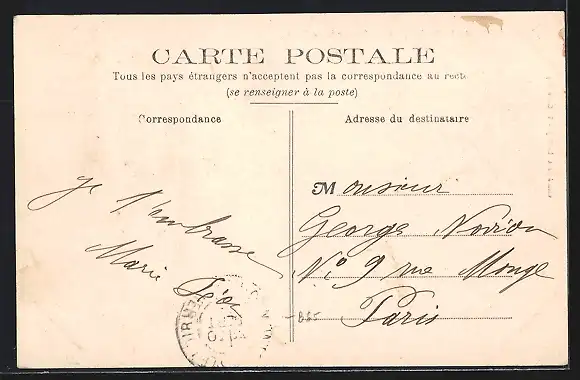 CARTE POSTALE
Tous les pays étrangers n'acceptent pas la correspondance au recto
(se renseigner à la poste)
Correspondance
Adresse du destinataire
Je t'embrasse
Marie
Monsieur
George
N° 9 rue Monge
Paris